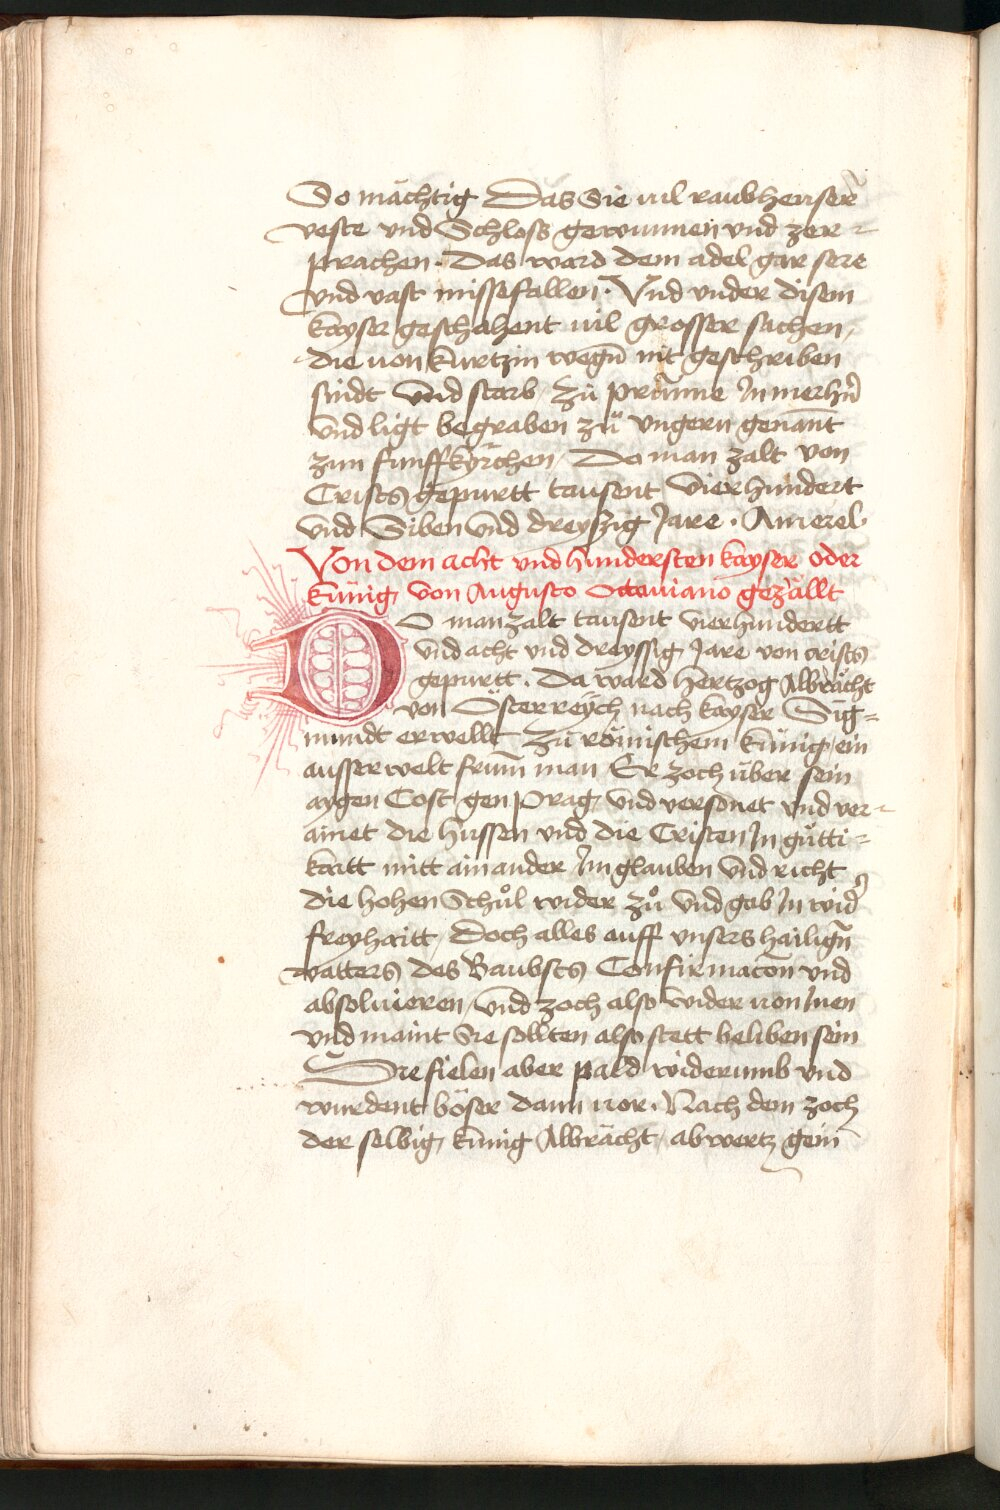 So mächtig Das Sie vil raubheuser
veste vnd Schloss gewunnen vnd zer-
prachen. Das ward dem adel gar sere
vnd vast missefallen. Vnd vnder disem
kayser geschahent vil grosser sachen,
die von kurtzin wegn̄ nit geschriben
sindt vnd starb zu prünne In merhn̄
vnd ligt begraben zů vngern genant
zun funffkyrchen, Do man zalt von
Crists gepurtt tausent vierhundert
vnd Siben vnd dreyszig Jare.
Von dem acht vnd hundersten kayser oder
künig von Augusto Octauiano gezällt
DO man zalt tausent vierhundertt
vnd acht vnd dreyssig Jare von crists
gepurtt. Da ward hertzog Albrächt
von Österreÿch nach kayser Sig=
mundt erwellt zů römischem künig ein
ausserwelt frum̄ man Er zoch über sein
aygen Cost gen Prag, vnd versonet vnd ver-
ainet die hussen vnd die Cristen In gütti=
kaitt mitt ainander Im glauben vnd richt
die hohen Schůl wider zů vnd gab In wider
freyhaitt, Doch alles auff vnsers hailign̄
vatters des Baubsts Confirmacōn vnd
absoluieren, vnd zoch also wider von Inen
vnd maint Sie sollten also stett beliben sein
Sie fielen aber pald widerumb vnd
wurdent böser dann vor. Nach dem zoch
der selbig künig Albrächt, abwertz gein